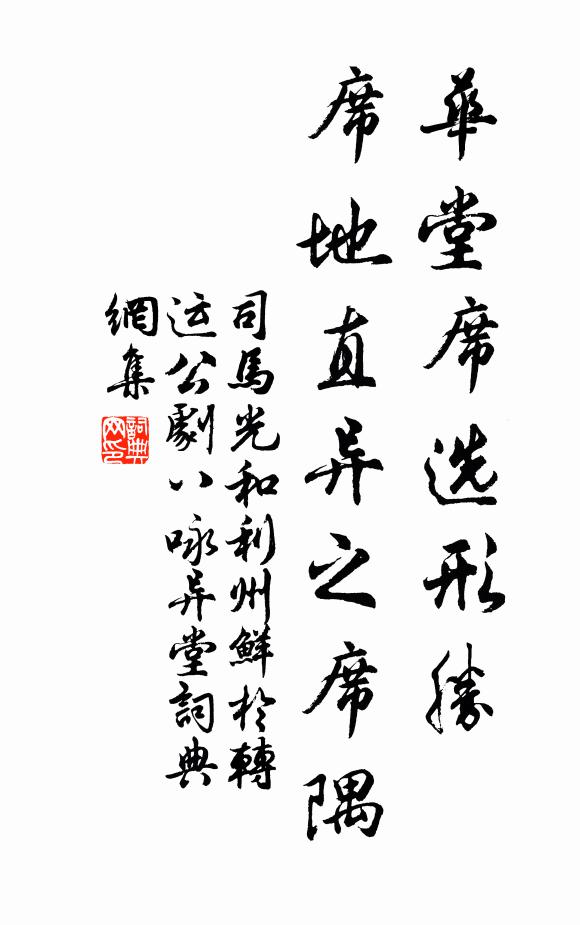 華堂席选形勝
席地直异之席隅
司馬光和利州鮮於轉
运公劇八咏异堂詞典
網集
詞典
网印